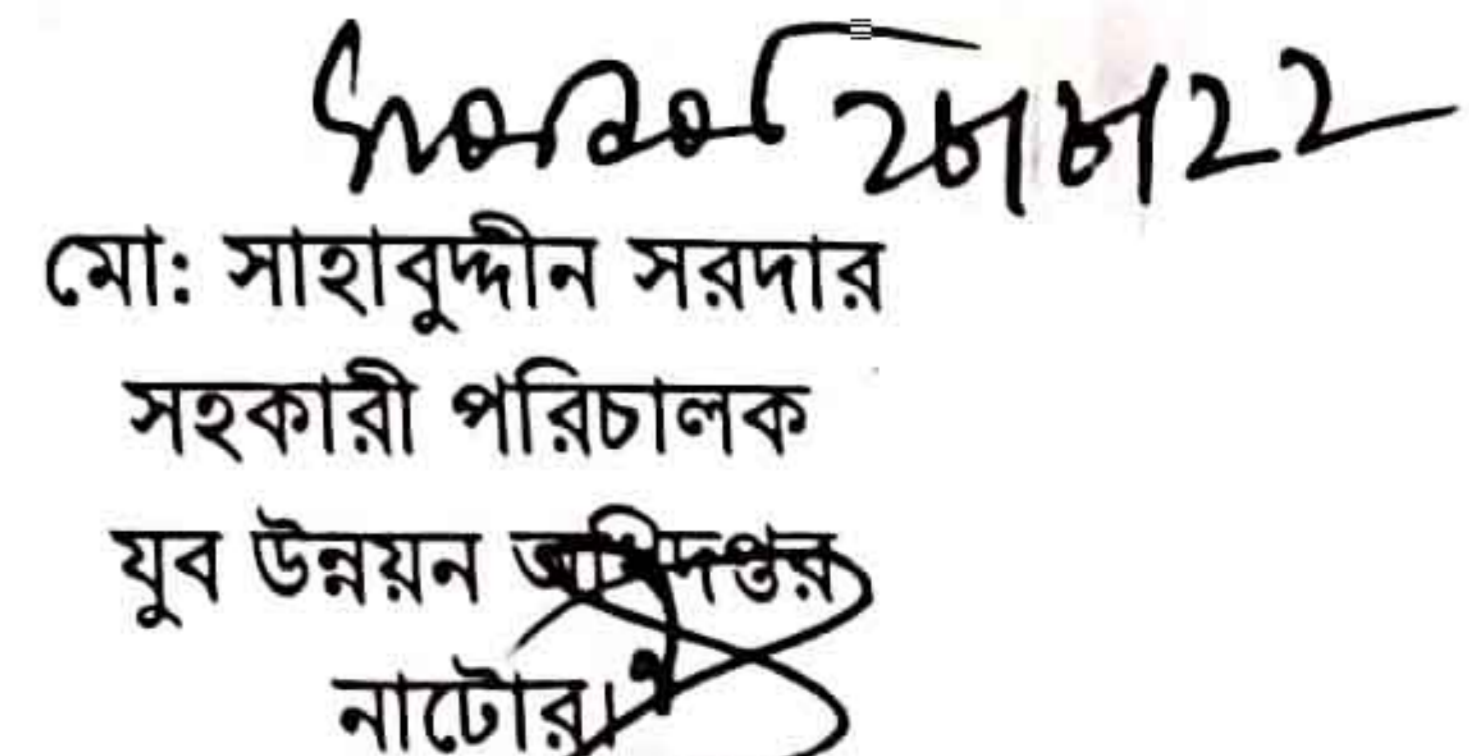 মো: সাহাবুদ্দীন সরদার
সহকারী পরিচালক
যুব উন্নয়ন অধিদপ্তর
নাটোর।